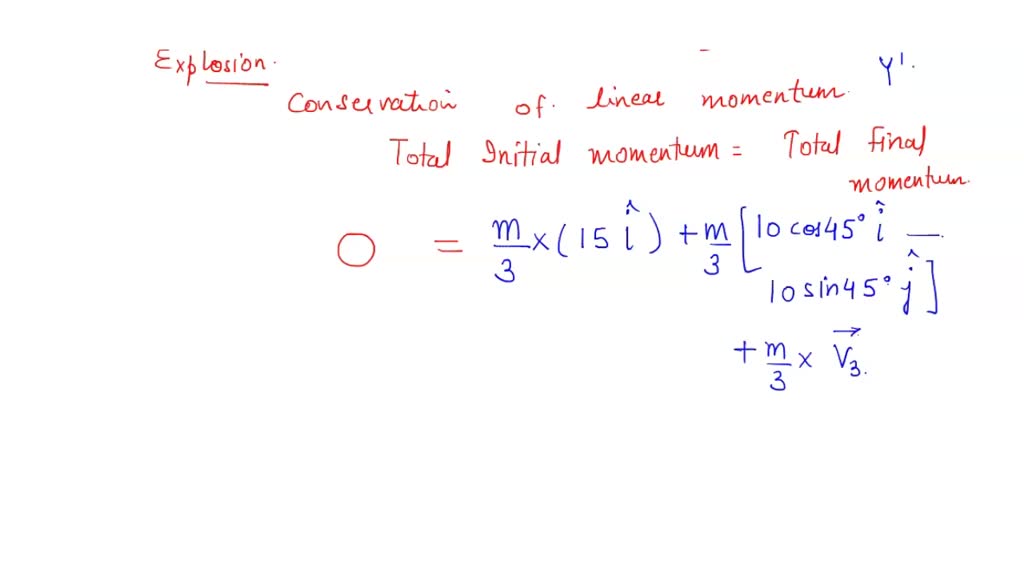 Explosion.
Y'.
Conservation of linear momentum.
Total Initial momentum = Total final
momentum.
O = m/3 × (15 î) + m/3 [10 cos45° î —
10 sin45° ĵ]
+ m/3 × V⃗₃.